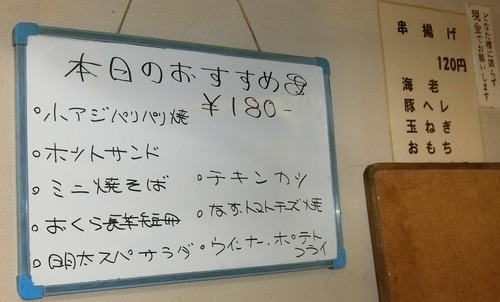 本日のおすすめ
¥180-
。小アジパリパリ焼
。ホットサンド
。ミニ焼そば
。おくら
。明太スパサラダ
。チキンカツ
。なす、トマトチーズ焼
。ウインナー・ポテト
フライ
串揚げ
120円
海老
豚ヘレ
玉ねぎ
おもち
どなた様に限らず
現金でお願いします